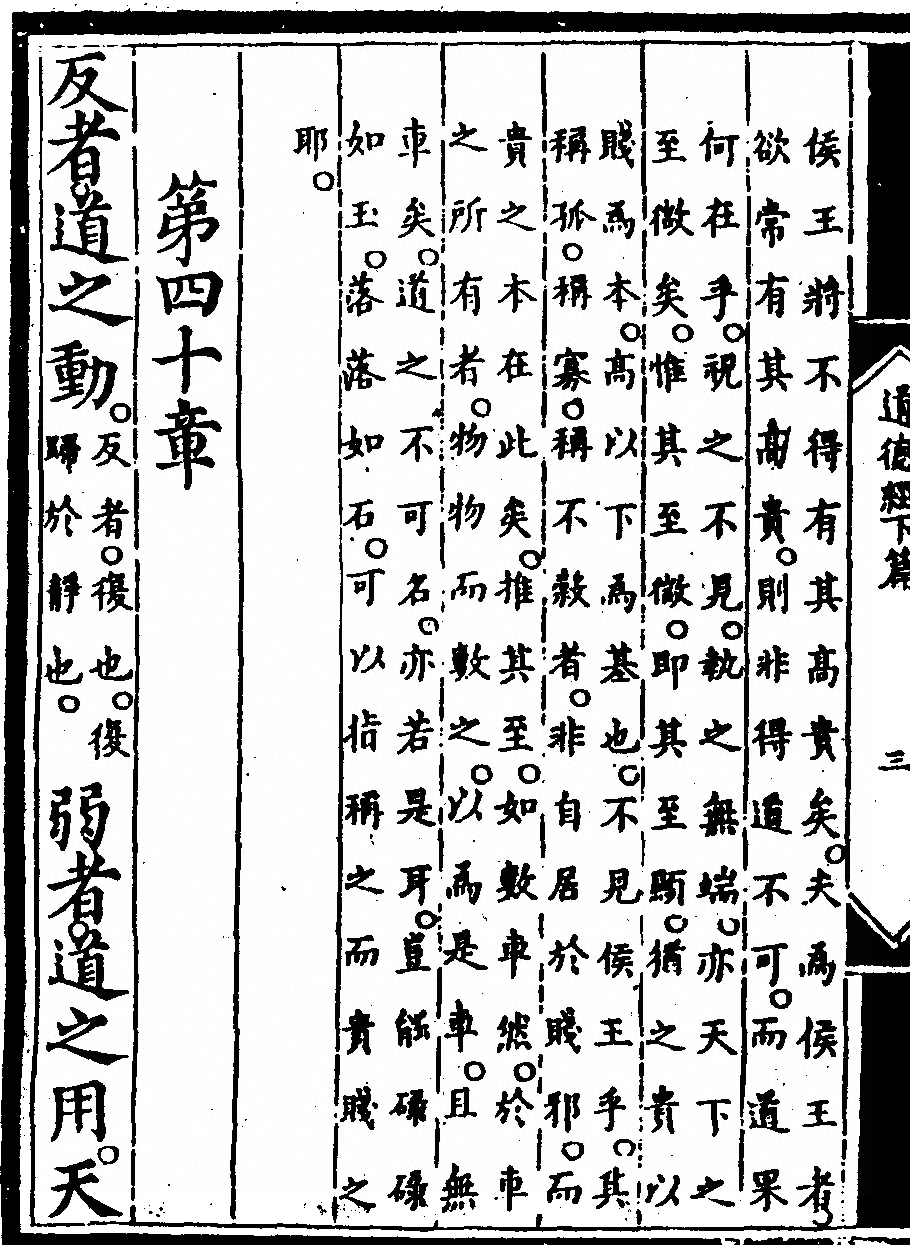 侯王將不得有其高貴矣。夫爲侯王者
欲常有其高貴。則非得道不可。而道果
何在乎。視之不見。執之無端。亦天下之
至微矣。惟其至微。即其至顯。猶之貴以
賤爲本。高以下爲基也。不見侯王乎。其
稱孤。稱寡。稱不穀者。非自居於賤邪。而
貴之本在此矣。推其至。如數車然。於車
之所有者。物物而數之。以爲是車。且無
車矣。道之不可名。亦若是耳。豈能碌碌
如玉。落落如石。可以指稱之而貴賤之
耶。
第四十章
反者。道之動。反者。復也。復
歸於靜也。弱者。道之用。天
道德經下篇
三